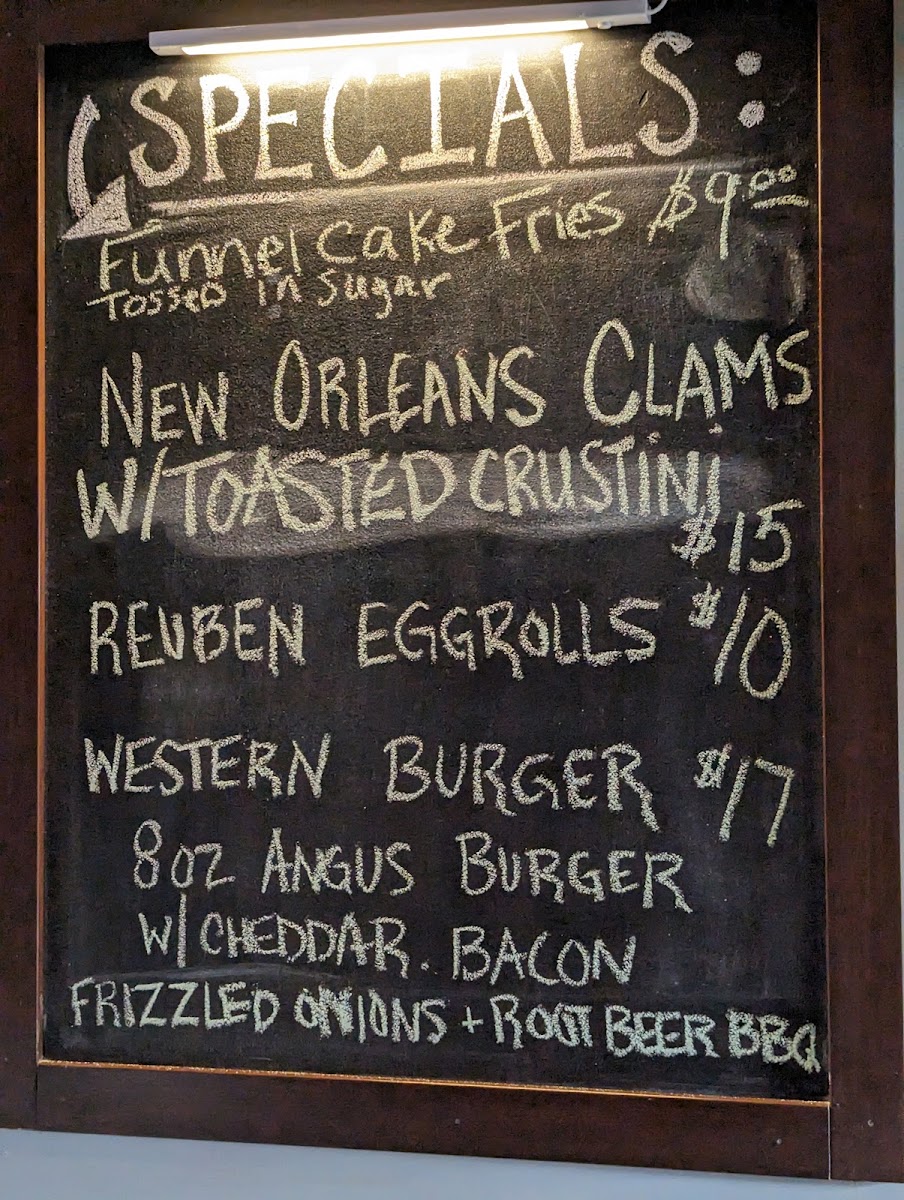 SPECIALS:
Funnel Cake Fries $9.00
Tossed in Sugar
NEW ORLEANS CLAMS
W/TOASTED CRUSTINI
$15
REUBEN EGGROLLS $10
WESTERN BURGER $17
8oz ANGUS BURGER
W/CHEDDAR. BACON
FRIZZLED ONIONS + ROOT BEER BBQ